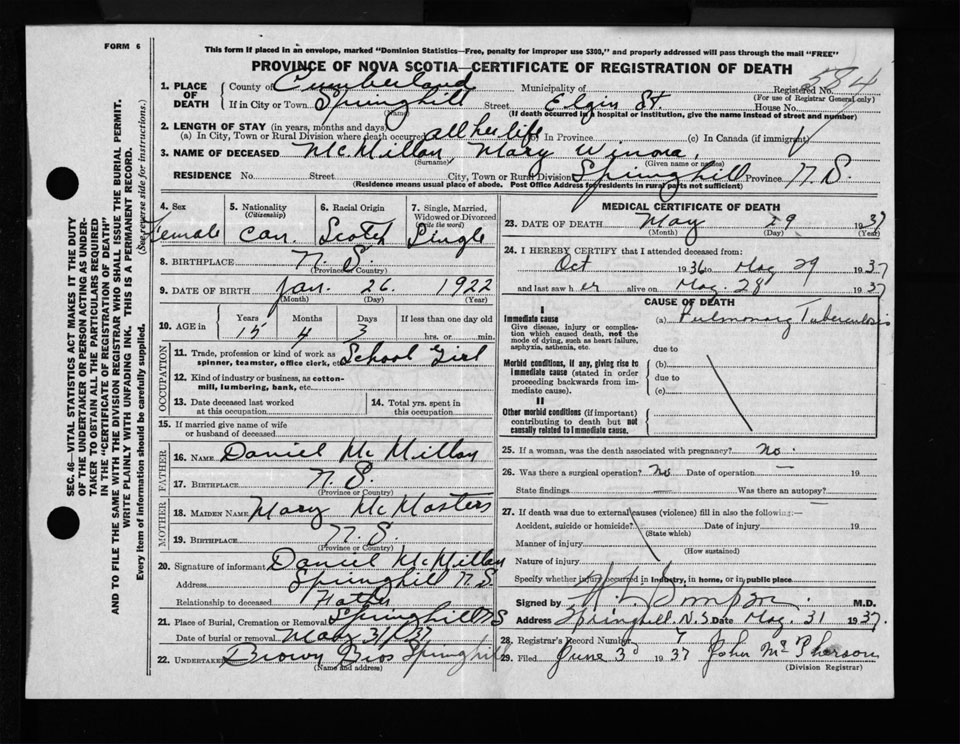 FORM 6
This form if placed in an envelope, marked "Dominion Statistics—Free, penalty for improper use $300," and properly addressed will pass through the mail "FREE"
PROVINCE OF NOVA SCOTIA—CERTIFICATE OF REGISTRATION OF DEATH
584
1. PLACE OF DEATH County of Cumberland Municipality of Registered No.
(For use of Registrar General only)
If in City or Town Springhill Street Elgin St. House No.
(Name) (If death occurred in a hospital or institution, give the name instead of street and number)
2. LENGTH OF STAY (in years, months and days)
(a) In City, Town or Rural Division where death occurred all her life In Province (c) In Canada (if immigrant)
3. NAME OF DECEASED McMillan Mary Winona
(Surname) (Given name or names)
RESIDENCE No. Street City, Town or Rural Division Springhill Province N.S.
(Residence means usual place of abode. Post Office Address for residents in rural parts not sufficient)
4. Sex Female
5. Nationality (Citizenship) Can.
6. Racial Origin Scotch
7. Single, Married, Widowed or Divorced (Write the word) Single
8. BIRTHPLACE N.S.
(Province or Country)
9. DATE OF BIRTH Jan. 26. 1922
(Month) (Day) (Year)
10. AGE in Years Months Days If less than one day old
15 4 3 hrs. or min.
OCCUPATION
11. Trade, profession or kind of work as spinner, teamster, office clerk, etc. School Girl
12. Kind of industry or business, as cotton-mill, lumbering, bank, etc.
13. Date deceased last worked at this occupation
14. Total yrs. spent in this occupation
15. If married give name of wife or husband of deceased
FATHER
16. NAME Daniel McMillan
17. BIRTHPLACE N.S.
(Province or Country)
MOTHER
18. MAIDEN NAME Mary McMasters
19. BIRTHPLACE N.S.
(Province or Country)
20. Signature of informant Daniel McMillan
Address Springhill N.S.
Relationship to deceased Father
21. Place of Burial, Cremation or Removal Springhill NS
Date of burial or removal May 31/37
22. UNDERTAKER Brown Bros Springhill
(Name and address)
MEDICAL CERTIFICATE OF DEATH
23. DATE OF DEATH May 29 1937
(Month) (Day) (Year)
24. I HEREBY CERTIFY that I attended deceased from:
Oct 1936 to May 29 1937
and last saw her alive on May 28 1937
CAUSE OF DEATH
I
Immediate cause (a) Pulmonary Tuberculosis
Give disease, injury or complication which caused death, not the mode of dying, such as heart failure, asphyxia, asthenia, etc.
due to
Morbid conditions, if any, giving rise to immediate cause (stated in order proceeding backwards from immediate cause).
(b)
due to
(c)
II
Other morbid conditions (if important) contributing to death but not causally related to immediate cause.
25. If a woman, was the death associated with pregnancy? no.
26. Was there a surgical operation? no Date of operation — 19
State findings — Was there an autopsy?
27. If death was due to external causes (violence) fill in also the following:—
Accident, suicide or homicide? Date of injury 19
(State which)
Manner of injury
(How sustained)
Nature of injury
Specify whether injury occurred in industry, in home, or in public place
Signed by M.D.
Address Springhill, N.S. Date May 31 1937.
28. Registrar's Record Number 7
29. Filed June 3d 1937 John McPherson
(Division Registrar)
SEC. 46—VITAL STATISTICS ACT MAKES IT THE DUTY
OF THE UNDERTAKER OR PERSON ACTING AS UNDER-
TAKER TO OBTAIN ALL THE PARTICULARS REQUIRED
IN THE "CERTIFICATE OF REGISTRATION OF DEATH"
AND TO FILE THE SAME WITH THE DIVISION REGISTRAR WHO SHALL ISSUE THE BURIAL PERMIT.
WRITE PLAINLY WITH UNFADING INK. THIS IS A PERMANENT RECORD.
Every item of information should be carefully supplied. (See reverse side for instructions.)